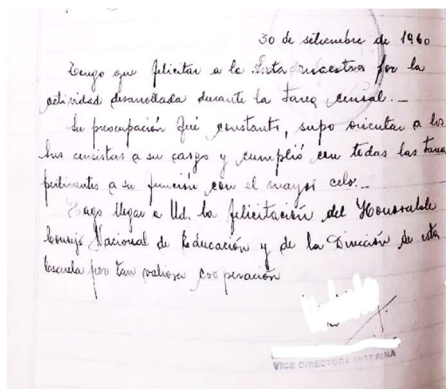 30 de setiembre de 1960
Tengo que felicitar a la Srta maestra por la
actividad desarrollada durante la tarea censal. _
Su preocupación fué constante, supo orientar a los
censistas a su cargo y cumplió con todas las tareas
pertinentes a su función con el mayor celo. _
Hago llegar a Ud. la felicitación del Honorable
Consejo Nacional de Educación y de la Dirección de esta
Escuela por tan valiosa cooperación
VICE DIRECTORA INTERINA